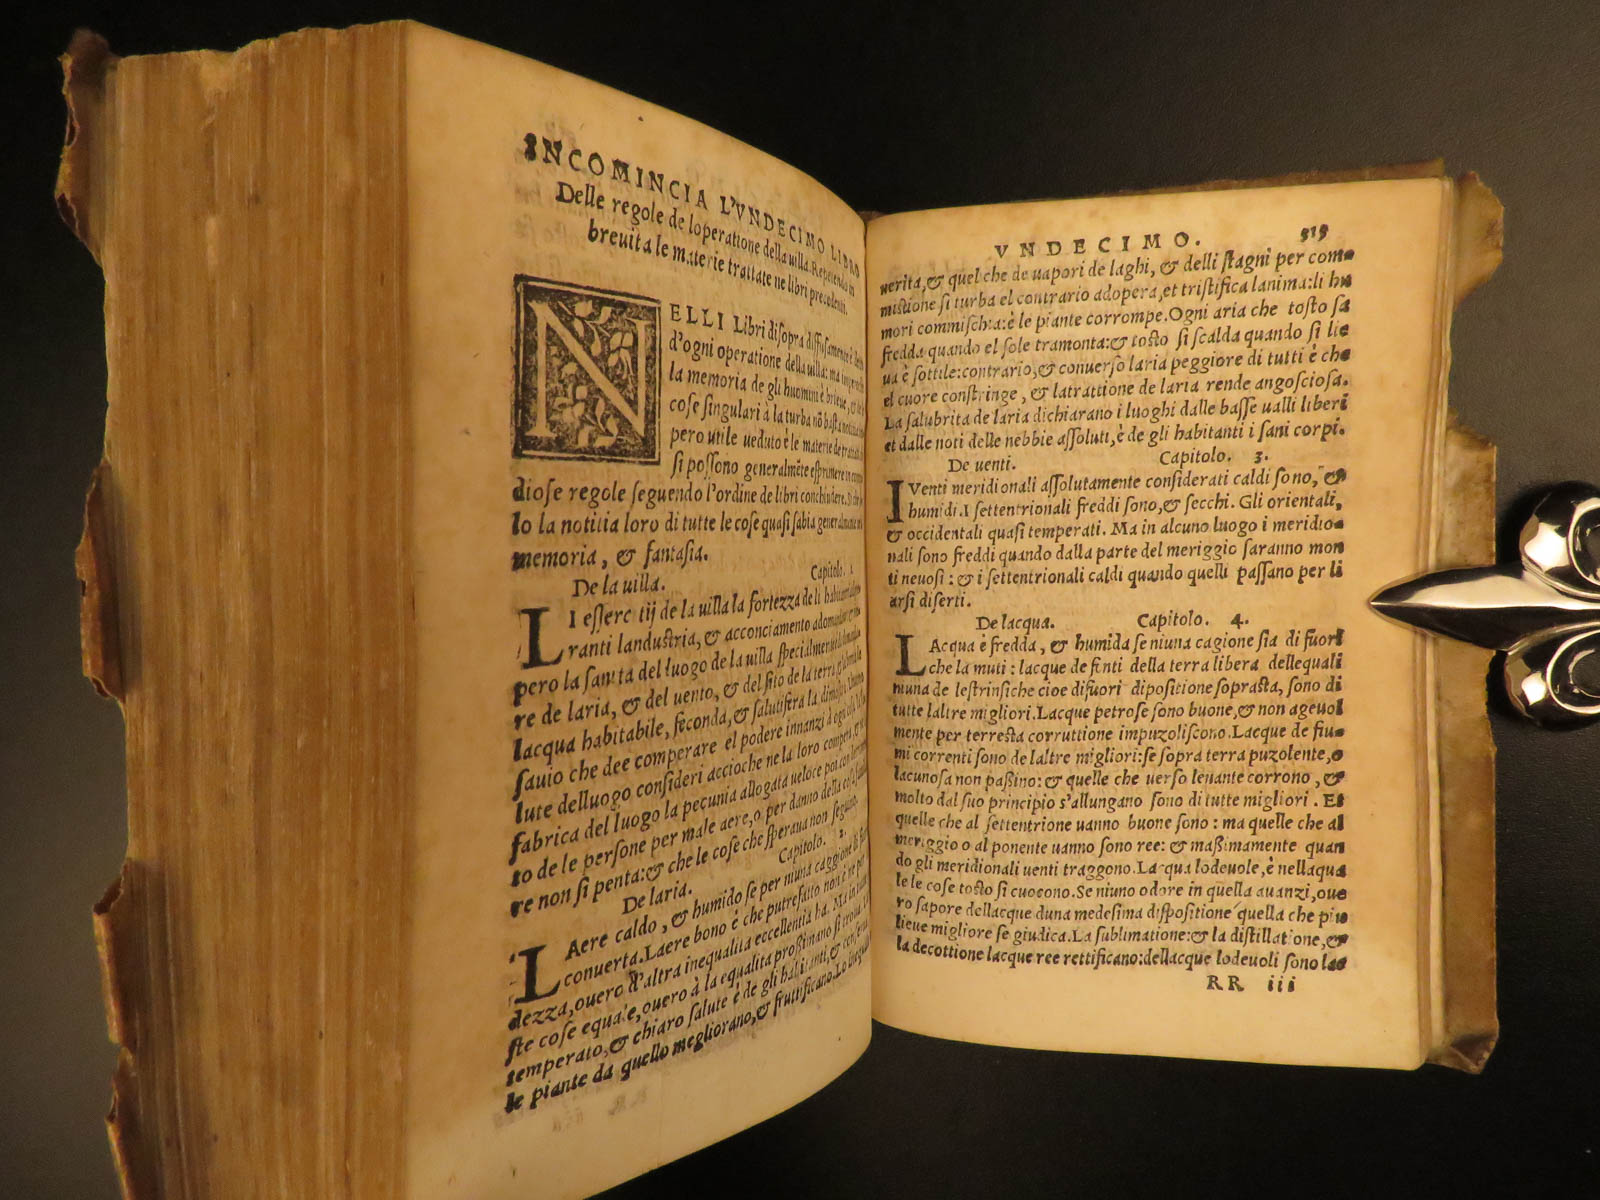 INCOMINCIA L'VNDECIMO LIBRO
Delle regole de loperatione della uilla. Repetendo in
breuita le materie trattate ne libri precedenti.
NELLI Libri disopra diffusamente è
d'ogni operatione della uilla: ma
la memoria de gli huomini è brieue, &
cose singulari à la turba nõ basta
pero utile ueduto è le materie de
si possono generalmẽte esprimere in
diose regole seguendo l'ordine de libri conchiudere.
lo la notitia loro di tutte le cose quasi s'abia
memoria, & fantasia.
De la uilla. Capitolo. 1.
LI essercitij de la uilla la fortezza de li
ranti landustria, & acconciamento
pero la sanita del luogo de la uilla specialmente
re de laria, & del uento, & del sito de la terra,
lacqua habitabile, feconda, & salutifera la
sauio che dee comperare el podere innanzi
lute delluogo consideri accioche ne la loro
fabrica del luogo la pecunia allogata ueloce poi
to de le persone per male aere, o per danno della
re non si penta: & che le cose che speraua non
De laria. Capitolo. 2.
LAere caldo, & humido se per niuna caggione
conuerta. Laere bono è che putrefatto non è
dezza, ouero d'altra inequalita eccellentia ha. Ma in
ste cose equale, ouero à la equalita proßimano si troua.
temperato, & chiaro salute è de gli habitanti, &
le piante da quello megliorano, & fruttificano. Lo
VNDECIMO. 315
uerita, & quel che de uapori de laghi, & delli stagni per com=
mistione si turba el contrario adopera, et tristifica lanima: li hu
mori commischia: è le piante corrompe. Ogni aria che tosto sa
fredda quando el sole tramonta: & tosto si scalda quando si lie
ua è sottile: contrario, & conuerso laria peggiore di tutti è che
el cuore constringe, & latrattione de laria rende angosciosa.
La salubrita de laria dichiarano i luoghi dalle basse ualli liberi
et dalle noti delle nebbie assoluti, è de gli habitanti i sani corpi.
De uenti. Capitolo. 3.
I Venti meridionali assolutamente considerati caldi sono, &
humidi. I settentrionali freddi sono, & secchi. Gli orientali,
& occidentali quasi temperati. Ma in alcuno luogo i meridio=
nali sono freddi quando dalla parte del meriggio saranno mon
ti neuosi: & i settentrionali caldi quando quelli passano per li
arsi diserti.
De lacqua. Capitolo. 4.
LAcqua è fredda, & humida se niuna cagione sia di fuori
che la muti: lacque de finti della terra libera dellequali
niuna de lestrinsiche cioe difuori dipositione soprasta, sono di
tutte laltre migliori. Lacque petrose sono buone, & non ageuol
mente per terresta corruttione impuzoliscono. Lacque de fiu=
mi correnti sono de laltre migliori: se sopra terra puzolente, o
lacunosa non paßino: & quelle che uerso leuante corrono, &
molto dal suo principio s'allungano sono di tutte migliori. Et
quelle che al settentrione uanno buone sono: ma quelle che al
meriggio o al ponente uanno sono ree: & maßimamente quan
do gli meridionali uenti traggono. Lacqua lodeuole, è nellaqua
le le cose tosto si cuocono. Se niuno odore in quella auanzi, oue
ro sapore dellacque duna medesima dispositione quella che piu
lieue migliore se giudica. La sublimatione: & la distillatione, &
la decottione lacque ree rettificano: dellacque lodeuoli sono lac
RR iii